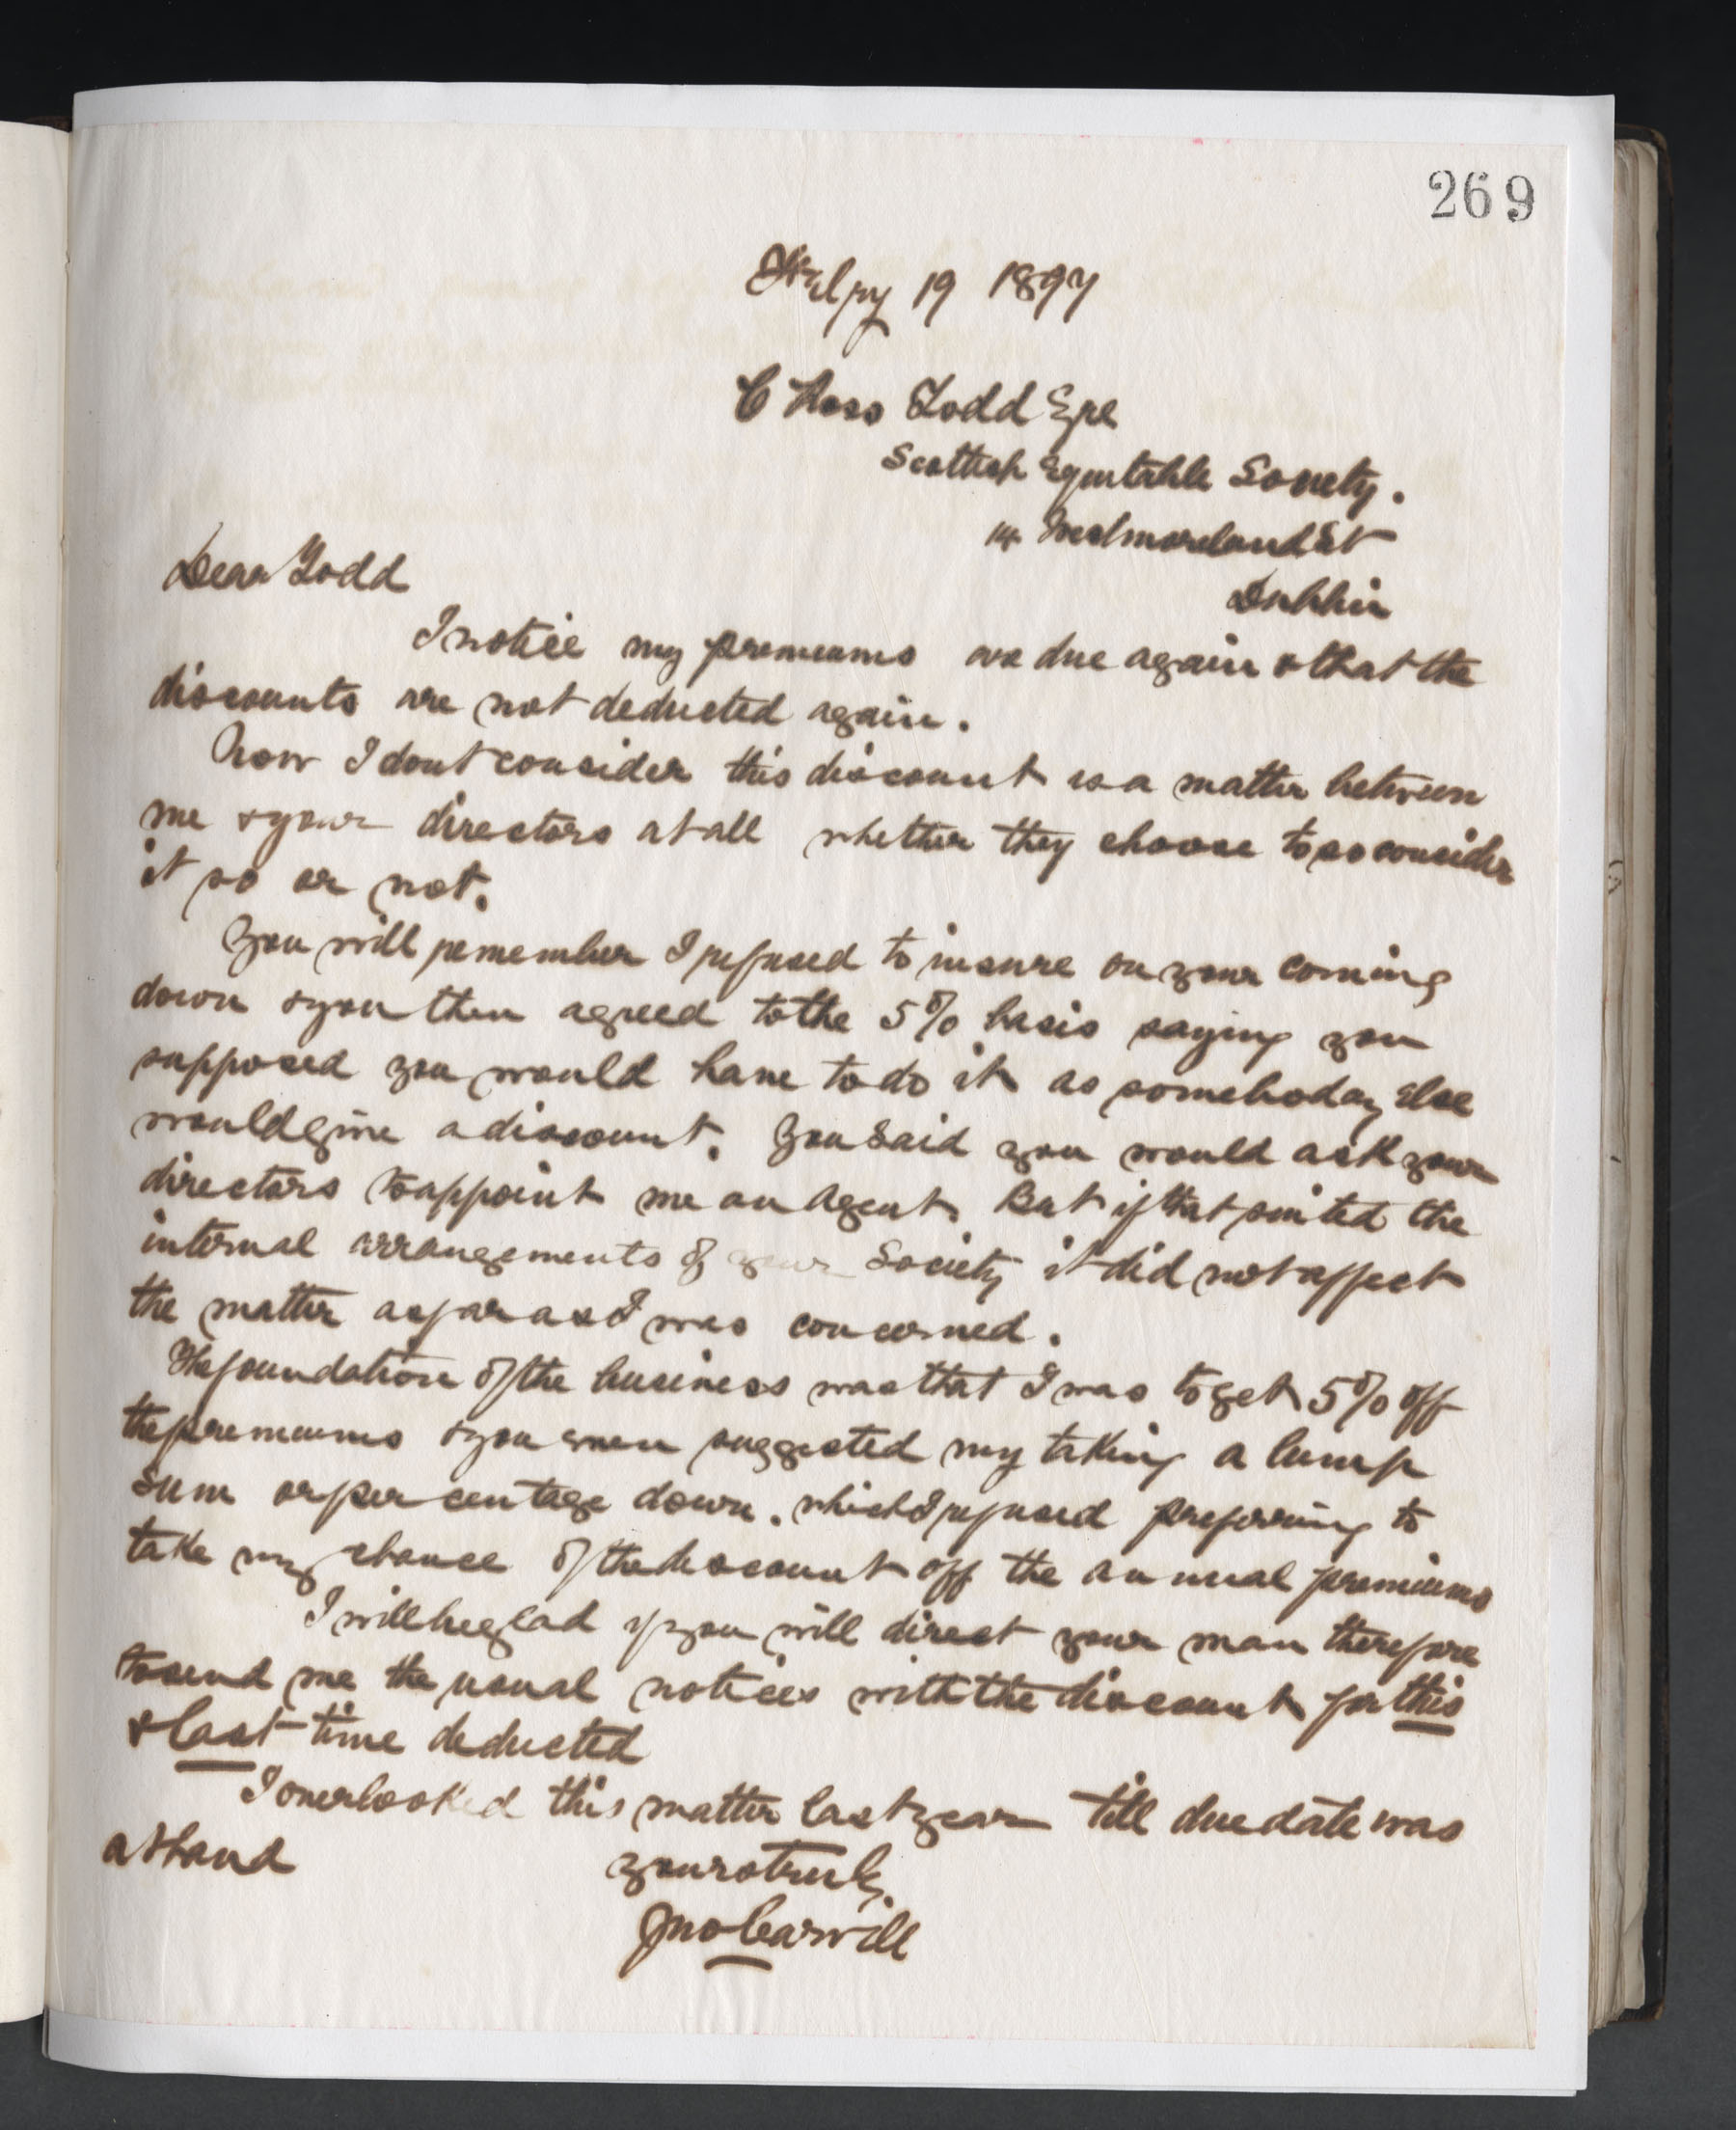 269
Feby 19 1897
C Ross Todd Eqre
Scottish Equitable Society.
14 Westmoreland St
Dublin
Dear Todd
I notice my premeums are due again & that the
discounts are not deducted again.
Now I dont consider this discount is a matter between
me & your directors at all whether they choose to so consider
it so or not.
You will remember I refused to insure on your coming
down & you then agreed to the 5% basis saying you
supposed you would have to do it as somebody else
would give a discount. You said you would ask your
directors to appoint me an Agent. But if that suited the
internal arrangements of your Society it did not affect
the matter as far as I was concerned.
The foundation of the business was that I was to get 5% off
the premeums & you even suggested my taking a lump
sum or per centage down. which I refused preferring to
take my chance of the discount off the annual premiums
I will be glad if you will direct your man therefore
to send me the usual notices with the discount for this
& last time deducted
I overlooked this matter last year till due date was
at hand
yours truly,
Jno Carvill